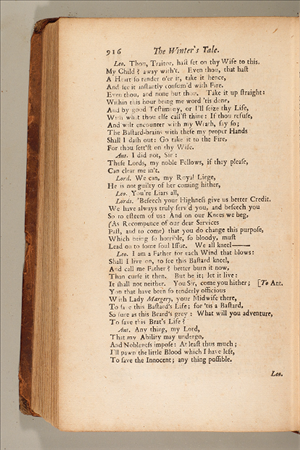 916 The Winter's Tale.
Leo. Thou, Traitor, hast set on thy Wife to this.
My Child? away with't. Even thou, that hast
A Heart so tender o'er it, take it hence,
And see it instantly consum'd with Fire.
Even thou, and none but thou. Take it up straight:
Within this hour bring me word 'tis done,
And by good Testimony, or I'll seize thy Life,
With what thou else call'st thine: If thou refuse,
And wilt encounter with my Wrath, say so;
The Bastard-brains with these my proper Hands
Shall I dash out: Go take it to the Fire,
For thou sett'st on thy Wife.
Ant. I did not, Sir:
These Lords, my noble Fellows, if they please,
Can clear me in't.
Lord. We can, my Royal Liege,
He is not guilty of her coming hither,
Leo. You're Liars all,
Lords. 'Beseech your Highness give us better Credit.
We have always truly serv'd you, and beseech you
So to esteem of us: And on our Knees we beg,
(As Recompence of our dear Services
Past, and to come) that you do change this purpose,
Which being so horrible, so bloody, must
Lead on to some foul Issue. We all kneel——
Leo. I am a Father for each Wind that blows:
Shall I live on, to see this Bastard kneel,
And call me Father? better burn it now,
Than curse it then. But be it; let it live:
It shall not neither. You Sir, come you hither; [To Ant.
You that have been so tenderly officious
With Lady Margery, your Midwife there,
To save this Bastard's Life; for 'tis a Bastard,
So sure as this Beard's grey: What will you adventure,
To save this Brat's Life?
Ant. Any thing, my Lord,
That my Ability may undergo,
And Nobleness impose: At least thus much;
I'll pawn the little Blood which I have left,
To save the Innocent; any thing possible.
Leo.